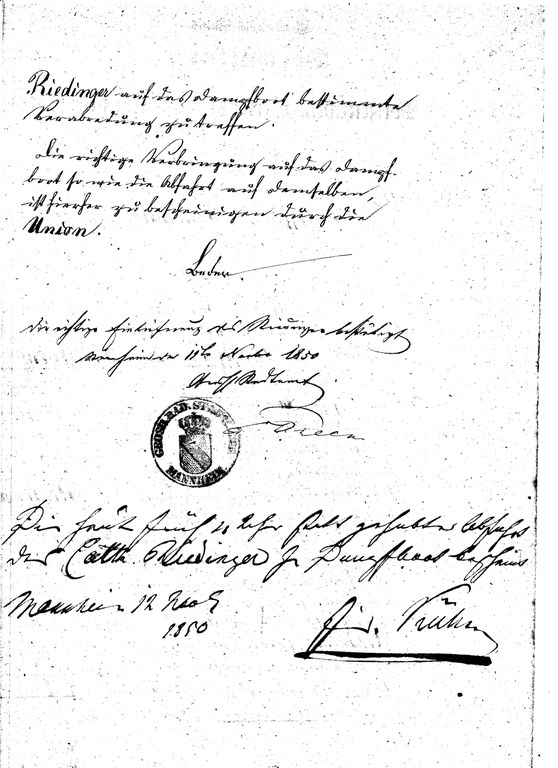 Riedinger auf das Dampfboot bestimmte
Verabredung zu treffen.
Die richtige Verbringung auf das Dampf-
boot so wie die Abfahrt auf demselben,
ist hierher zu bescheinigen durch die
Union.
Die richtige Einlieferung des Riedinger bestätigt
Mannheim den 11ten 1850
Stadtamt
GROSH. BAD.
MANNHEIM.
Die heute früh 4 Uhr statt gehabte Abfahrt
der Cath. Riedinger p Dampfboot bescheint
Mannheim 12 Nov
1850